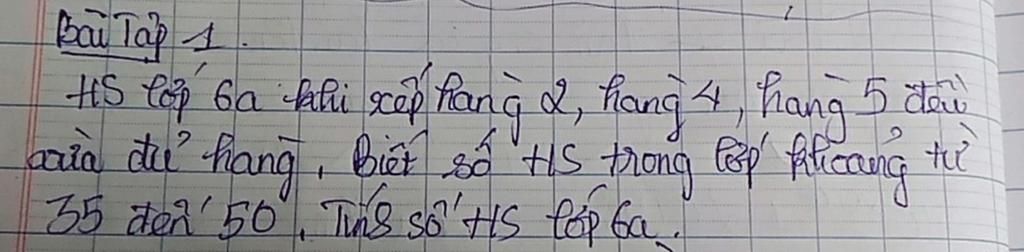 Bài Tập 1.
HS lớp 6a khi xếp hàng 2, hàng 4, hàng 5 đều
vừa đủ hàng. Biết số HS trong lớp khoảng từ
35 đến 50. Tính số HS lớp 6a.